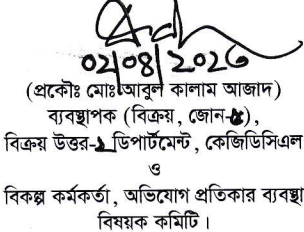 ০২/০৪/২০২৩
(প্রকৌঃ মোঃ আবুল কালাম আজাদ)
ব্যবস্থাপক (বিক্রয়, জোন-৪),
বিক্রয় উত্তর-১ ডিপার্টমেন্ট, কেজিডিসিএল
ও
বিকল্প কর্মকর্তা, অভিযোগ প্রতিকার ব্যবস্থা
বিষয়ক কমিটি।